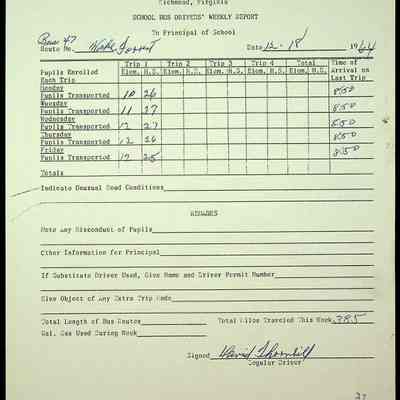 Richmond, Virginia
SCHOOL BUS DRIVERS' WEEKLY REPORT
To Principal of School
Bus 47
Route No. Date 12-18 1964
Trip 1 Trip 2 Trip 3 Trip 4 Total Time of
Pupils Enrolled Elem. H.S. Elem. H.S. Elem. H.S. Elem. H.S. Elem. H.S. Arrival on
Each Trip Last Trip
Monday
Pupils Transported 10 26 8:50
Tuesday
Pupils Transported 11 27 8:50
Wednesday
Pupils Transported 12 27 8:50
Thursday
Pupils Transported 12 26 8:50
Friday
Pupils Transported 12 25 8:50
Totals
Indicate Unusual Road Conditions
REMARKS
Note Any Misconduct of Pupils
Other Information for Principal
If Substitute Driver Used, Give Name and Driver Permit Number
Give Object of Any Extra Trip Made
Total Length of Bus Routes Total Miles Traveled This Week 385
Gal. Gas Used During Week
Signed David Thornhill
Regular Driver